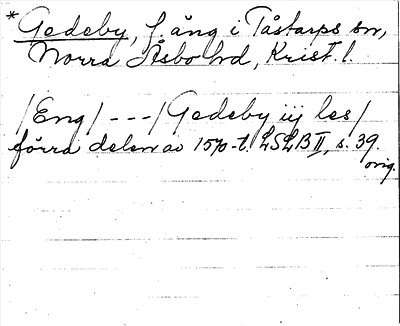 * Gedeby, f. äng i Tåstarps sn,
Norra Åsbo hd, Krist. l.
/Eng/ --- / Gedeby iij les/
förra delen av 1570-t. LSLB II, s. 39.
orig.